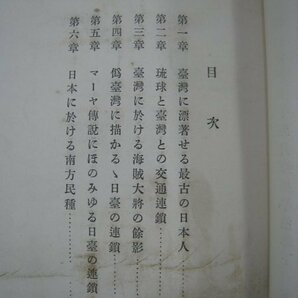 目次
第一章 臺灣に漂著せる最古の日本人………
第二章 琉球と臺灣との交通連鎖………
第三章 臺灣に於ける海賊大將の餘影………
第四章 僞臺灣に描かるゝ日臺の連鎖………
第五章 マーヤ傳說にほのみゆる日臺の連鎖
第六章 日本に於ける南方民種………